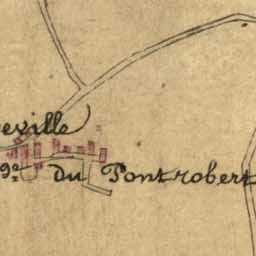 eville
9a du Pontrobert